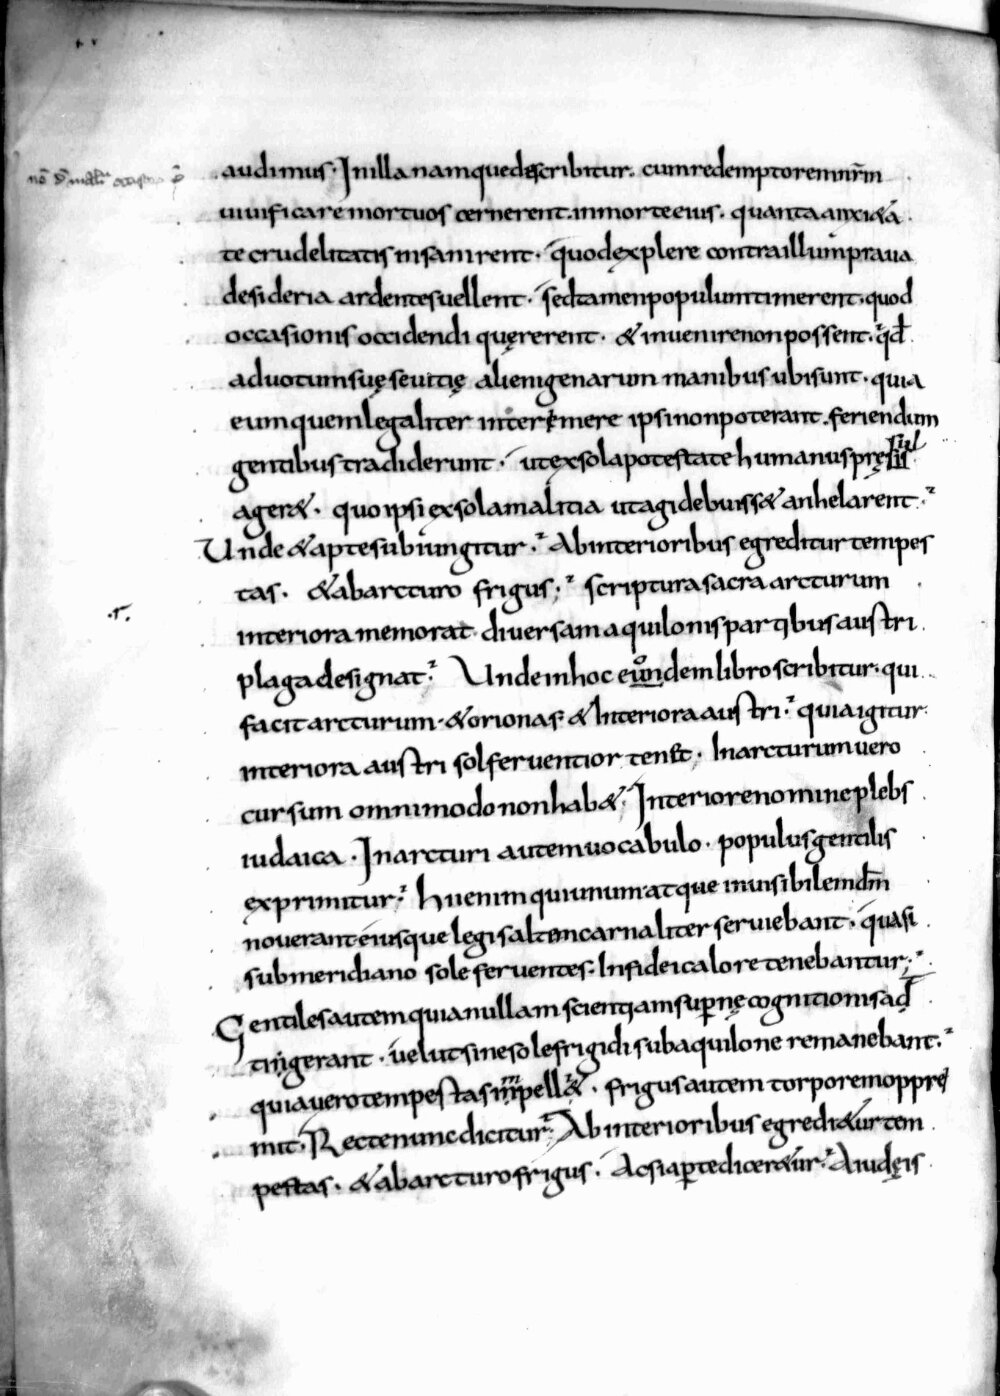 audimus. In illa namque describitur. cum redemptorem nr̄m
uiuificare mortuos cernerent. in morte eius. quanta anxi&a
te crudelitatis insanirent. quod explere contra illum praua
desideria ardentes uellent. sed tamen populum timerent. quod
occasionis occidendi quęrerent. & inuenire non possent. qđ
ad uotum suę seuitię alienigenarum manibus ubi sunt. quia
eum quem legaliter interimere ipsi non poterant. feriendum
gentibus tradiderunt. ut ex sola potestate humanus pręsul
ager&. quo ipsi ex sola malitia ut agi debuiss& anhelarent.
Unde & apte subiungitur. Ab interioribus egreditur tempes
tas. & ab arcturo frigus; scriptura sacra arcturum
interiora memorat diuersam aquilonis partibus austri
plaga designat. Unde in hoc eundem libro scribitur. qui
facit arcturum. & orionas & Interiora austri. quia igitur
interiora austri sol feruentior ten&. In arcturum uero
cursum omnimodo non hab&. Interiore nomine plebs
iudaica. In arcturi autem uocabulo. populus gentilis
exprimitur. hii enim qui unum atque inuisibilem dm̄
nouerant eiusque legi saltem carnaliter seruiebant. quasi
sub meridiano sole feruentes. In fidei calore tenebantur;
Gentiles autem quia nullam scientiam supernę cognitionis ad
tingerant. uelut sine sole frigidi sub aquilone remanebant.
quia uero tempestas impell&. frigus autem torporem oppre
mit. Recte nunc dicitur. Ab interioribus egredi&ur tem
pestas. & ab arcturo frigus. Ac si aperte dicer&ur. A iudęis